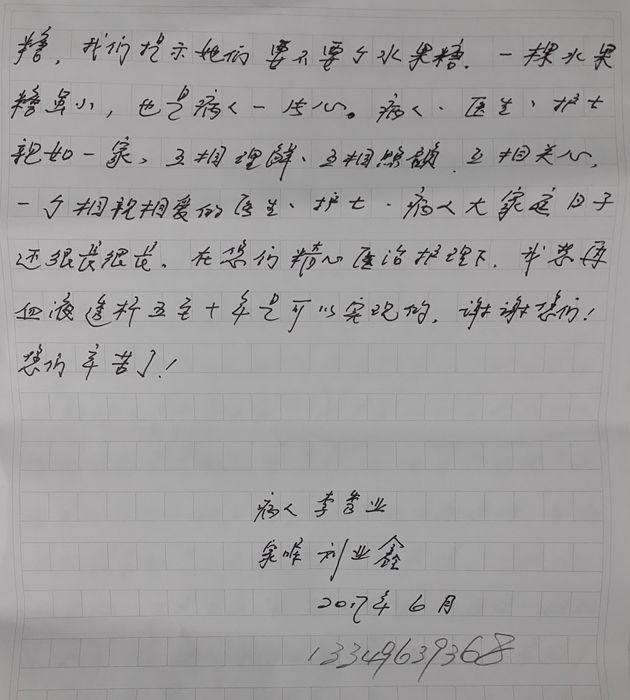 糖，我们提示她们要不要个水果糖。一棵水果
糖虽小，也是病人一片心。病人、医生、护士
亲如一家、互相理解、互相照顾、互相关心，
一个相亲相爱的医生、护士、病人大家庭日子
还很长很长。在您们精心医治护理下，我想再
血液透析五至十年是可以实现的，谢谢您们！
您们辛苦了！
病人 李 业
家属 刘业鑫
2017年6月
13349639368